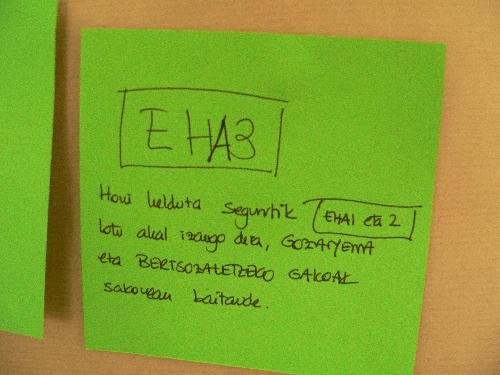 EHA3
Honi helduta segurutik EHA1 eta 2
lotu ahal izango dira, GOZAMENA
eta BERTSOZALETZEKO GAKOAK
sakonean baitaude.